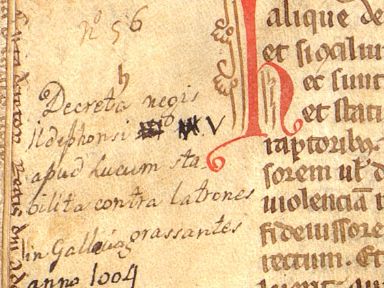 nº 56
Decreta regis
Ildephonsi V
apud Lucum sta-
bilita contra latrones
in Gallecia grassantes
anno 1004
alique de
et si
h
ec sunt
et stati
raptoribꝰ.
sorem ul' d
violenciam
fideiussore
rectum. Et